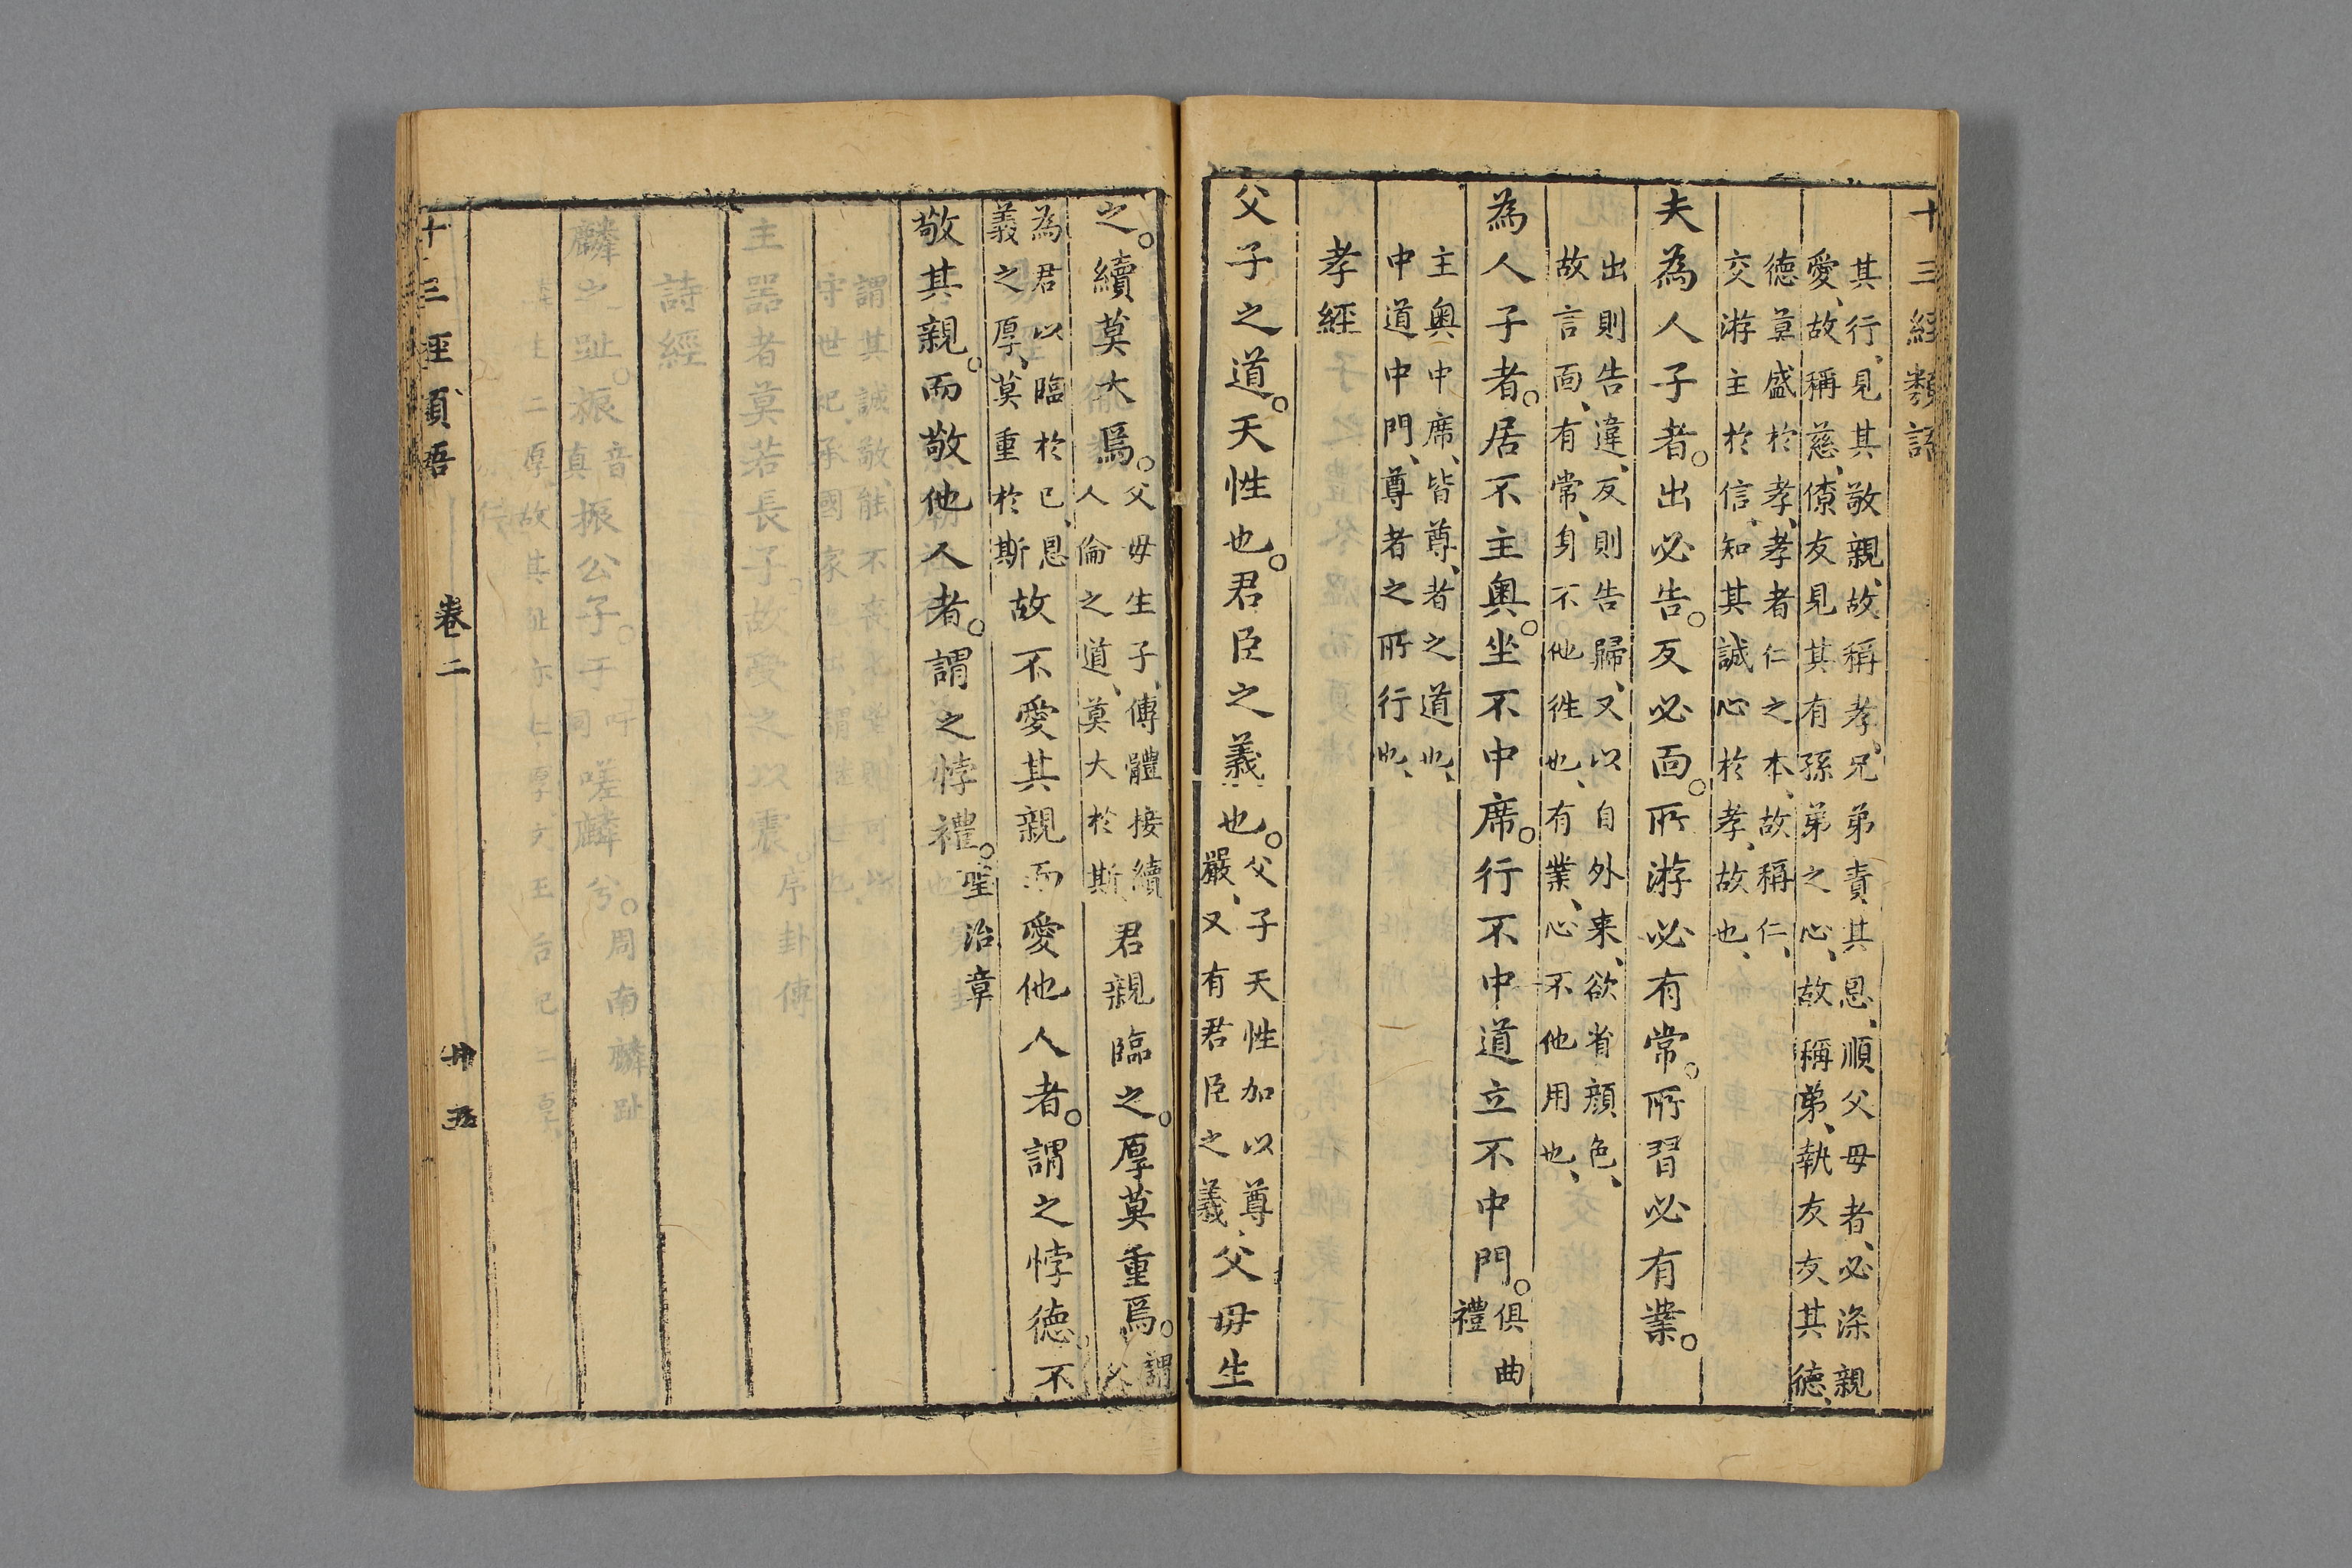 十三經類語
其行、見其敬親、故稱孝、兄弟責其恩、順父母者、必深親
愛、故稱慈、僚友見其有孫弟之心、故稱弟、執友友其德、
德莫盛於孝、孝者仁之本、故稱仁、
交游主於信、知其誠心於孝、故也、
夫為人子者。出必告。反必面。所游必有常。所習必有業。
出則告違、反則告歸、又以自外来、欲省顔色、
故言面、有常、身不他徃也、有業、心不他用也、
為人子者。居不主奥。坐不中席。行不中道立不中門。俱曲
禮
主奥中席、皆尊、者之道也、
中道中門、尊者之所行也、
孝經
父子之道。天性也。君臣之義也。父子天性加以尊
嚴、又有君臣之義、父母生
之。續莫大焉。父母生子、傳體接續
人倫之道、莫大於斯君親臨之。厚莫重焉。謂父
為君以臨於己、恩
義之厚、莫重於斯故不愛其親而愛他人者。謂之悖德。不
敬其親。而敬他人者。謂之悖禮。聖治章
十三經類語
卷二
卅五